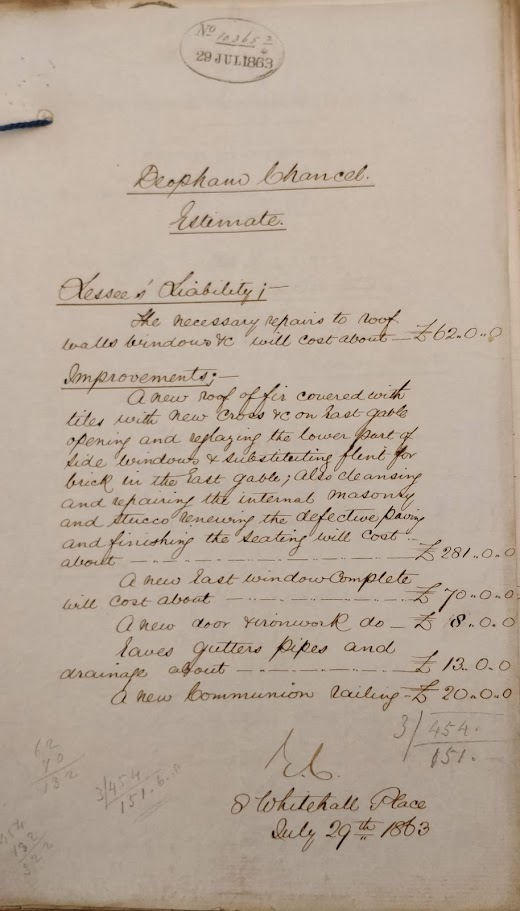 No 10365 2/4
29 JUL 1863
Deopham Chancel.
Estimate.
Lessee's Liability;—
The necessary repairs to roof
walls windows &c will cost about — £62..0..0
Improvements;—
A new roof of fir covered with
tiles with new cross &c on East gable
opening and reglazing the lower part of
side windows & substituting flint for
brick in the East gable; also cleansing
and repairing the internal masonry
and stucco renewing the defective paving
and finishing the seating will cost
about — £281..0..0
A new East window complete
will cost about — £70..0..0
A new door & ironwork do — £ 8..0..0
Eaves gutters pipes and
drainage about — £13..0..0
A new Communion railing — £20..0..0
3/454.
151.
62
70
132
3/454
151.6.8
454
132
322
8 Whitehall Place
July 29th 1863